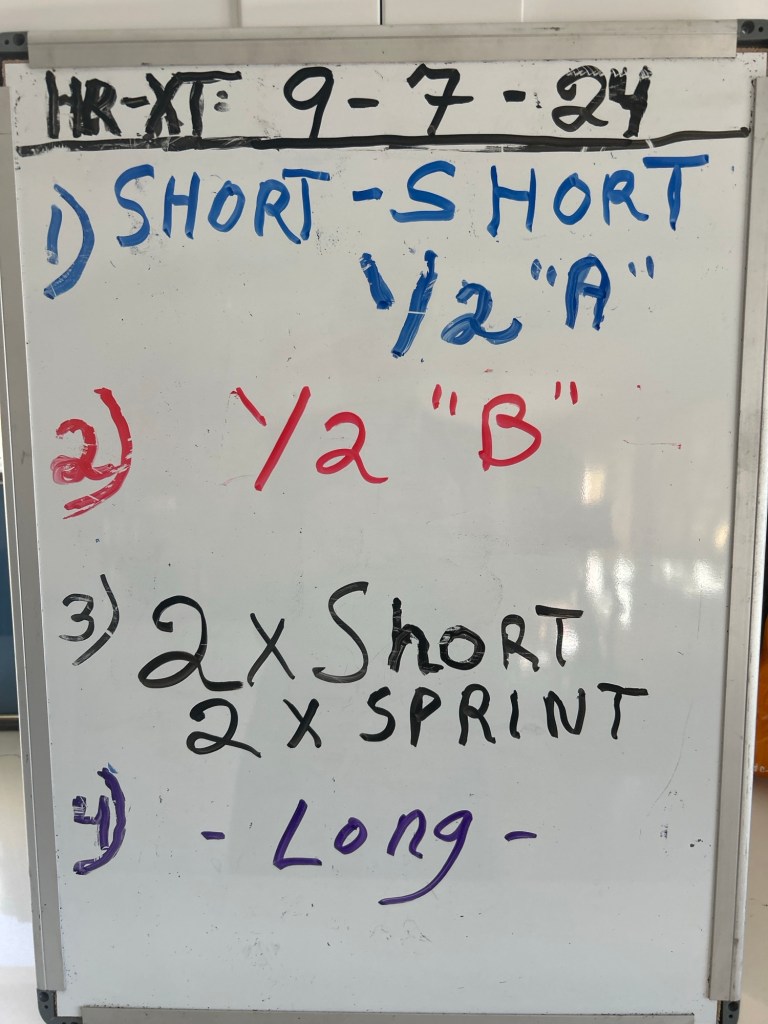 HR-XT: 9-7-24
1) SHORT-SHORT
1/2 "A"
2) 1/2 "B"
3) 2 x ShoRT
2 x SPRINT
4) - Long -